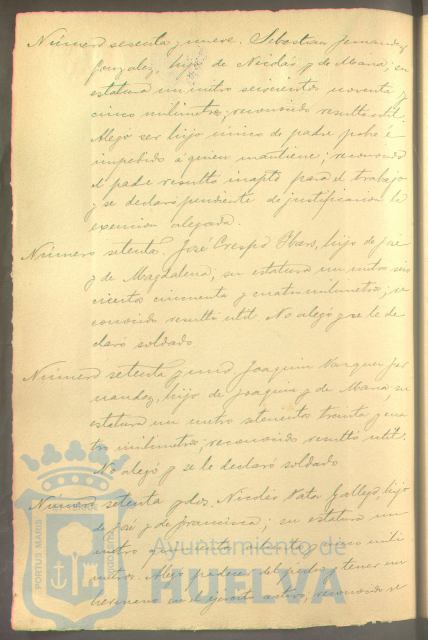 Número sesenta y nueve. Sebastian Fernandez
Gonzalez, hijo de Nicolás y de Maria; su
estatura un metro seiscientos noventa y
cinco milimetros; reconocido resultó util.
Alegó ser hijo único de padre pobre é
impedido á quien mantiene; reconocido
el padre resultó inapto para el trabajo
y se declaró pendiente de justificacion la
exencion alegada.
Número setenta. José Crespo, hijo de José
y de Magdalena; su estatura un metro seis
cientos cincuenta y cuatro milimetros; re
conocido resultó util. No alegó y se le de
claró soldado
Número setenta y uno. Joaquin Vazquez Fer
nandez, hijo de Joaquin y de Maria; su
estatura un metro setecientos treinta y cua
tro milimetros; reconocido resultó util.
No alegó y se le declaró soldado
Número setenta y dos. Nicolás Gallego, hijo
de José y de Francisca; su estatura un
metro quinientos noventa y cinco mili
metros. Alegó padecer del pecho y tener un
hermano en el ejército activo; reconocido re
PORTUS MARIS
Ayuntamiento de
HUELVA